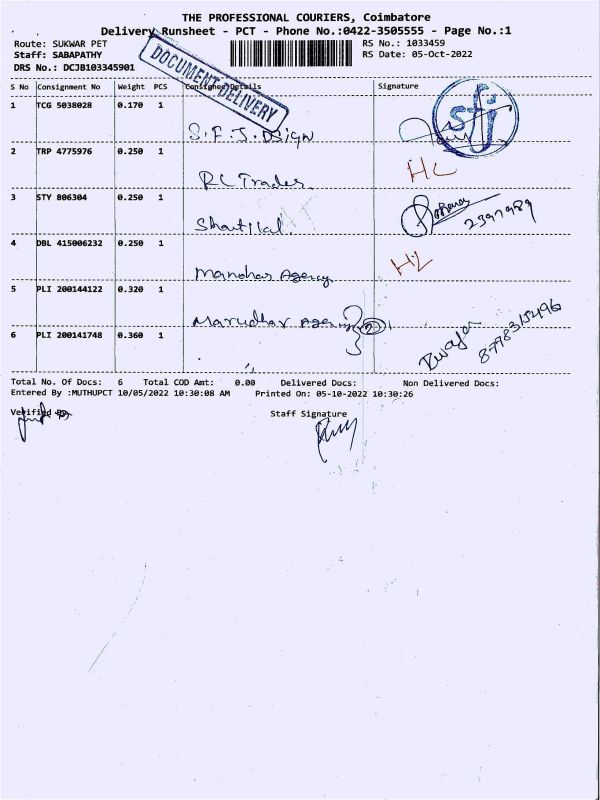 THE PROFESSIONAL COURIERS, Coimbatore
Delivery Runsheet - PCT - Phone No.:0422-3505555 - Page No.:1
Route: SUKWAR PET
RS No.: 1033459
Staff: SABAPATHY
RS Date: 05-Oct-2022
DRS No.: DCJB103345901
DOCUMENT DELIVERY
S No Consignment No Weight PCS Consignee Details Signature
1 TCG 5038028 0.170 1
S.F.J. DSIGN
sfj
2 TRP 4775976 0.250 1
RL Trader
HL
3 STY 806304 0.250 1
Shantilal
2397989
4 DBL 415006232 0.250 1
Manohar Agency
HL
5 PLI 200144122 0.320 1
Marudhar Agency 2
6 PLI 200141748 0.360 1
8778315496
Total No. Of Docs: 6 Total COD Amt: 0.00 Delivered Docs: Non Delivered Docs:
Entered By :MUTHUPCT 10/05/2022 10:30:08 AM Printed On: 05-10-2022 10:30:26
Verified By
Staff Signature